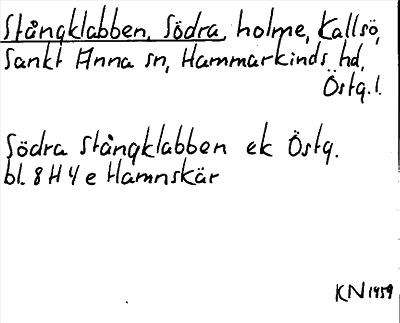 Stångklabben, Södra, holme, Kallsö,
Sankt Anna sn, Hammarkinds hd,
Östg. l.
Södra Stångklabben ek Östg.
bl. 8 H 4 e Hamnskär
KN 1959